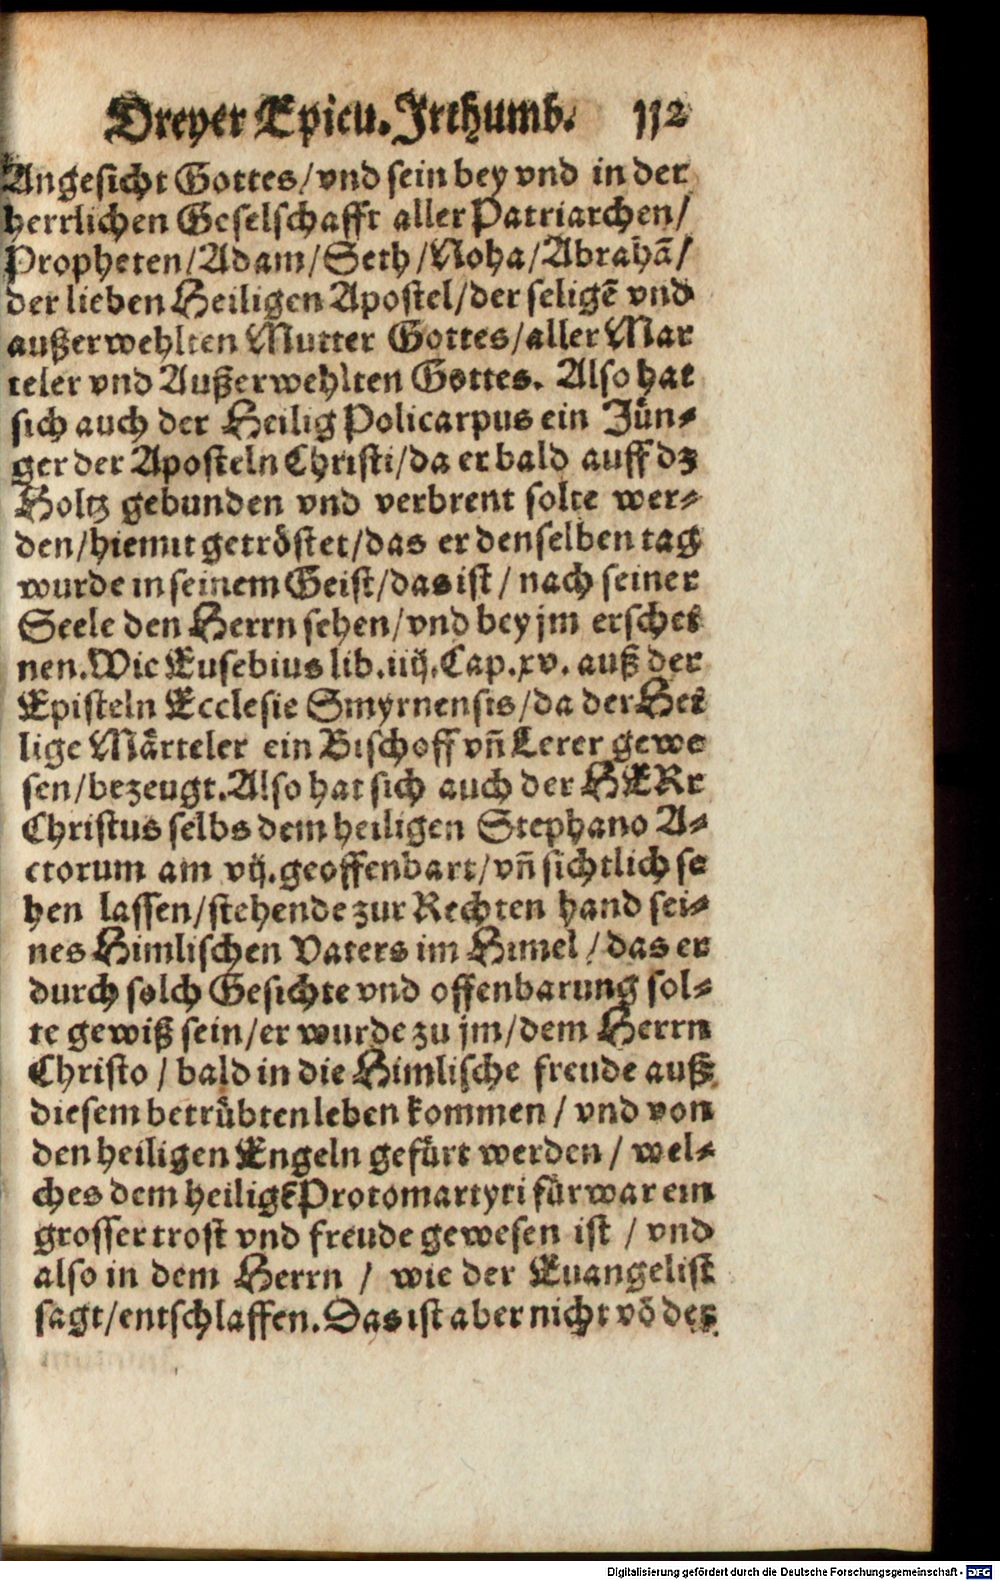 Dreyer Epicu. Irthumb. 112
Angesicht Gottes/vnd sein bey vnd in der
herrlichen Geselschafft aller Patriarchen/
Propheten/Adam/Seth/Noha/Abrahã/
der lieben Heiligen Apostel/der seligẽ vnd
außerwehlten Mutter Gottes/aller Mar
teler vnd Außerwehlten Gottes. Also hat
sich auch der Heilig Policarpus ein Jün⸗
ger der Aposteln Christi/da er bald auff dz
Holtz gebunden vnd verbrent solte wer⸗
den/hiemit getröstet/das er denselben tag
wurde in seinem Geist/das ist/nach seiner
Seele den Herrn sehen/vnd bey jm erschei
nen. Wie Eusebius lib.iiij. Cap.xv. auß der
Episteln Ecclesie Smyrnensis/da der Hei
lige Märteler ein Bischoff vñ Lerer gewe
sen/bezeugt. Also hat sich auch der HERr
Christus selbs dem heiligen Stephano A⸗
ctorum am vij. geoffenbart/vñ sichtlich se
hen lassen/stehende zur Rechten hand sei⸗
nes Himlischen Vaters im Himel/das er
durch solch Gesichte vnd offenbarung sol⸗
te gewiß sein/er wurde zu jm/dem Herrn
Christo/bald in die Himlische freude auß
diesem betrübten leben kommen/vnd von
den heiligen Engeln gefürt werden/wel⸗
ches dem heiligẽ Protomartyri fürwar ein
grosser trost vnd freude gewesen ist/vnd
also in dem Herrn/wie der Euangelist
sagt/entschlaffen. Das ist aber nicht võ der
Digitalisierung gefördert durch die Deutsche Forschungsgemeinschaft - DFG